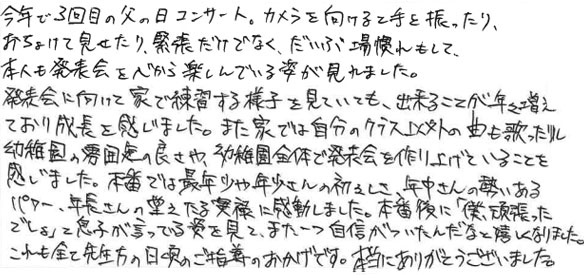 今年で3回目の父の日コンサート。カメラを向けると手を振ったり、
おちょけて見せたり、緊張だけでなく、だいぶ場慣れもして、
本人も発表会を心から楽しんでいる姿が見れました。
発表会に向けて家で練習する様子を見ていても、出来ることが年々増え
ており成長を感じました。また家では自分のクラス以外の曲も歌ったりし
幼稚園の雰囲気の良さや、幼稚園全体で発表会を作り上げていることを
感じました。本番では最年少や年少さんの初々しさ、年中さんの勢いある
パワー、年長さんの堂々たる実演に感動しました。本番後に「僕、頑張った
でしょ」と息子が言ってる姿を見て、また一つ自信がついたんだなと嬉しくなりました。
これも全て先生方の日頃のご指導のおかげです。本当にありがとうございました。